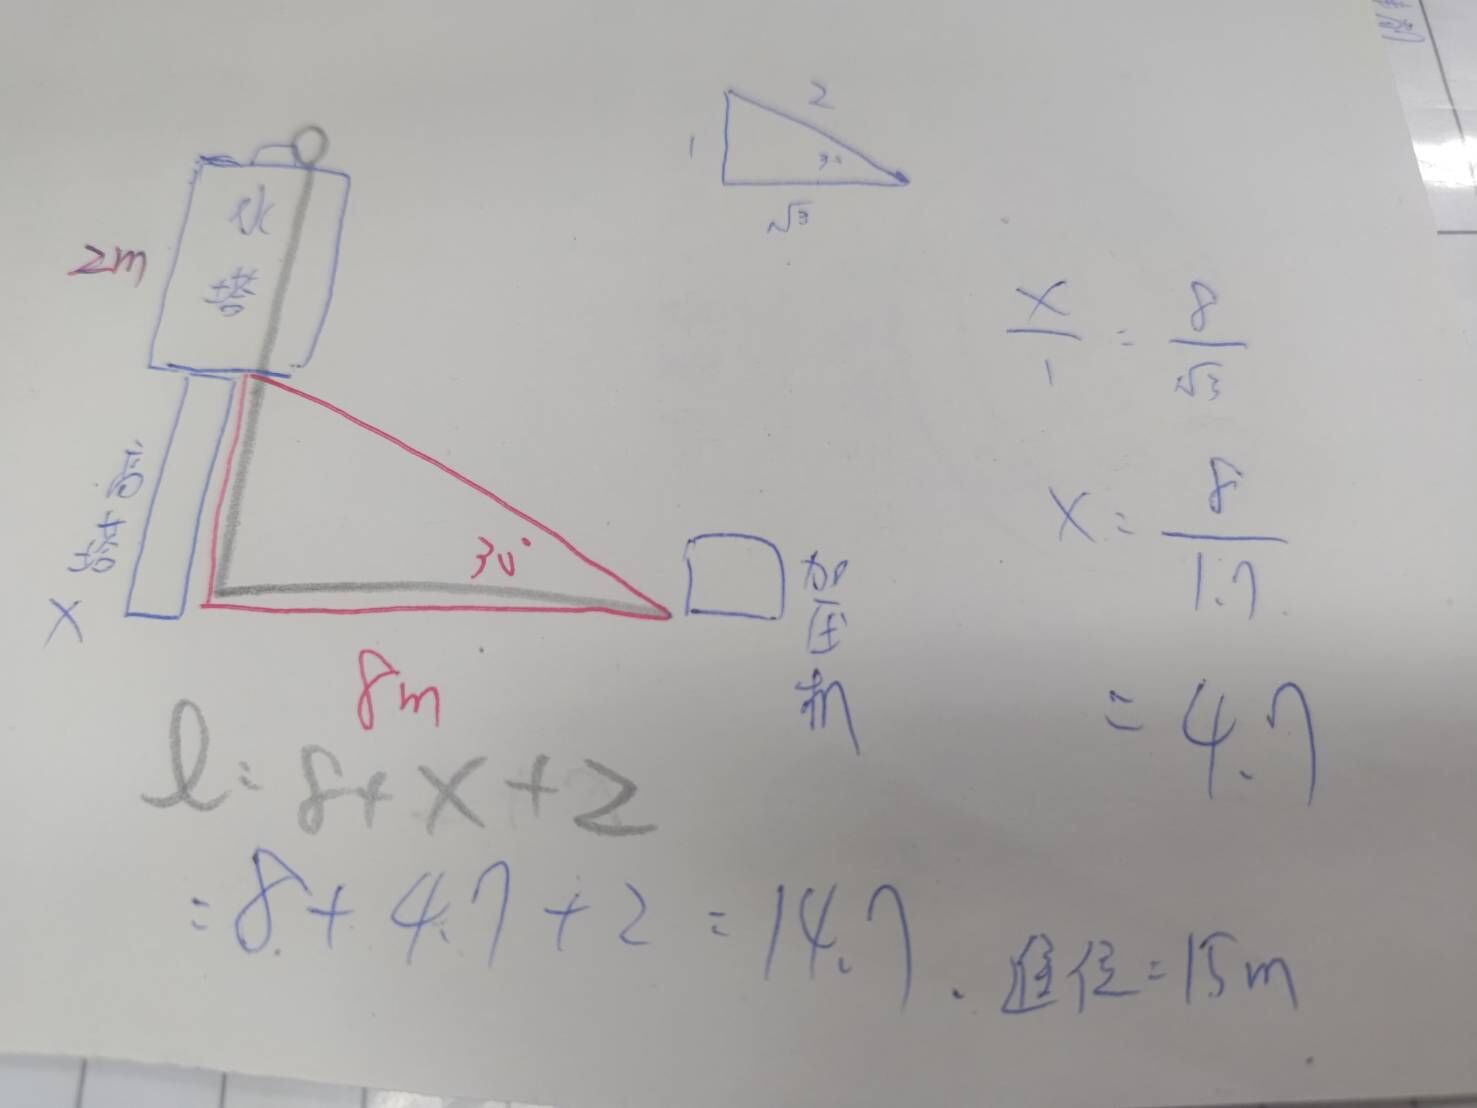 2
1
30
√3
水
塔
2m
X/1 = 8/√3
塔柱高
X
30°
加
压
机
8m
X = 8/1.7
= 4.7
l = 8+X+2
= 8+4.7+2 = 14.7.
=15m